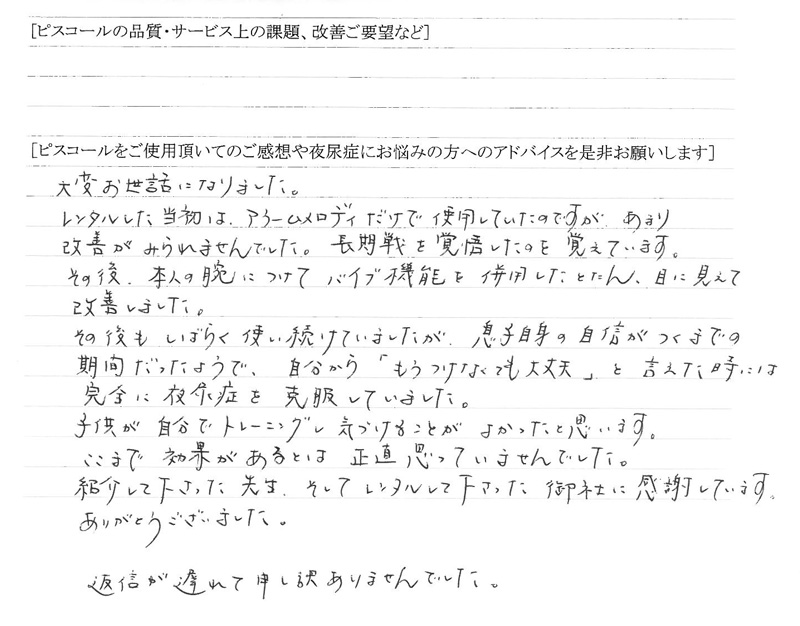 [ピスコールの品質・サービス上の課題、改善ご要望など]
[ピスコールをご使用頂いてのご感想や夜尿症にお悩みの方へのアドバイスを是非お願いします]
大変お世話になりました。
レンタルした当初は、アラームメロディだけで使用していたのですが あまり
改善がみられませんでした。長期戦を覚悟したのを覚えています。
その後、本人の腕につけて バイブ機能を併用したとたん、目に見えて
改善しました。
その後もしばらく使い続けていましたが、息子自身の自信がつくまでの
期間だったようで、自分から「もうつけなくても大丈夫」と言えた時には
完全に夜尿症を克服していました。
子供が自分でトレーニングし気づけることがよかったと思います。
ここまで効果があるとは正直思っていませんでした。
紹介して下さった先生、そしてレンタルして下さった御社に感謝しています。
ありがとうございました。
返信が遅れて申し訳ありませんでした。